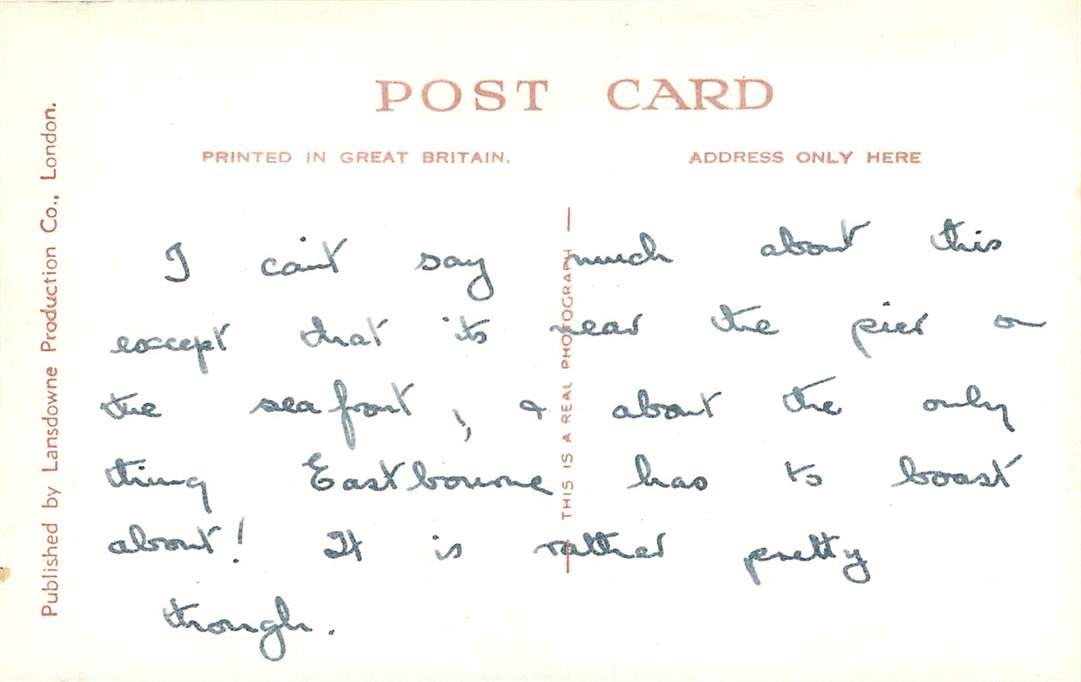 POST CARD
PRINTED IN GREAT BRITAIN.
ADDRESS ONLY HERE
Published by Lansdowne Production Co., London.
THIS IS A REAL PHOTOGRAPH
I can't say much about this
except that its near the pier on
the seafront, & about the only
thing Eastbourne has to boast
about! It is rather pretty
though.